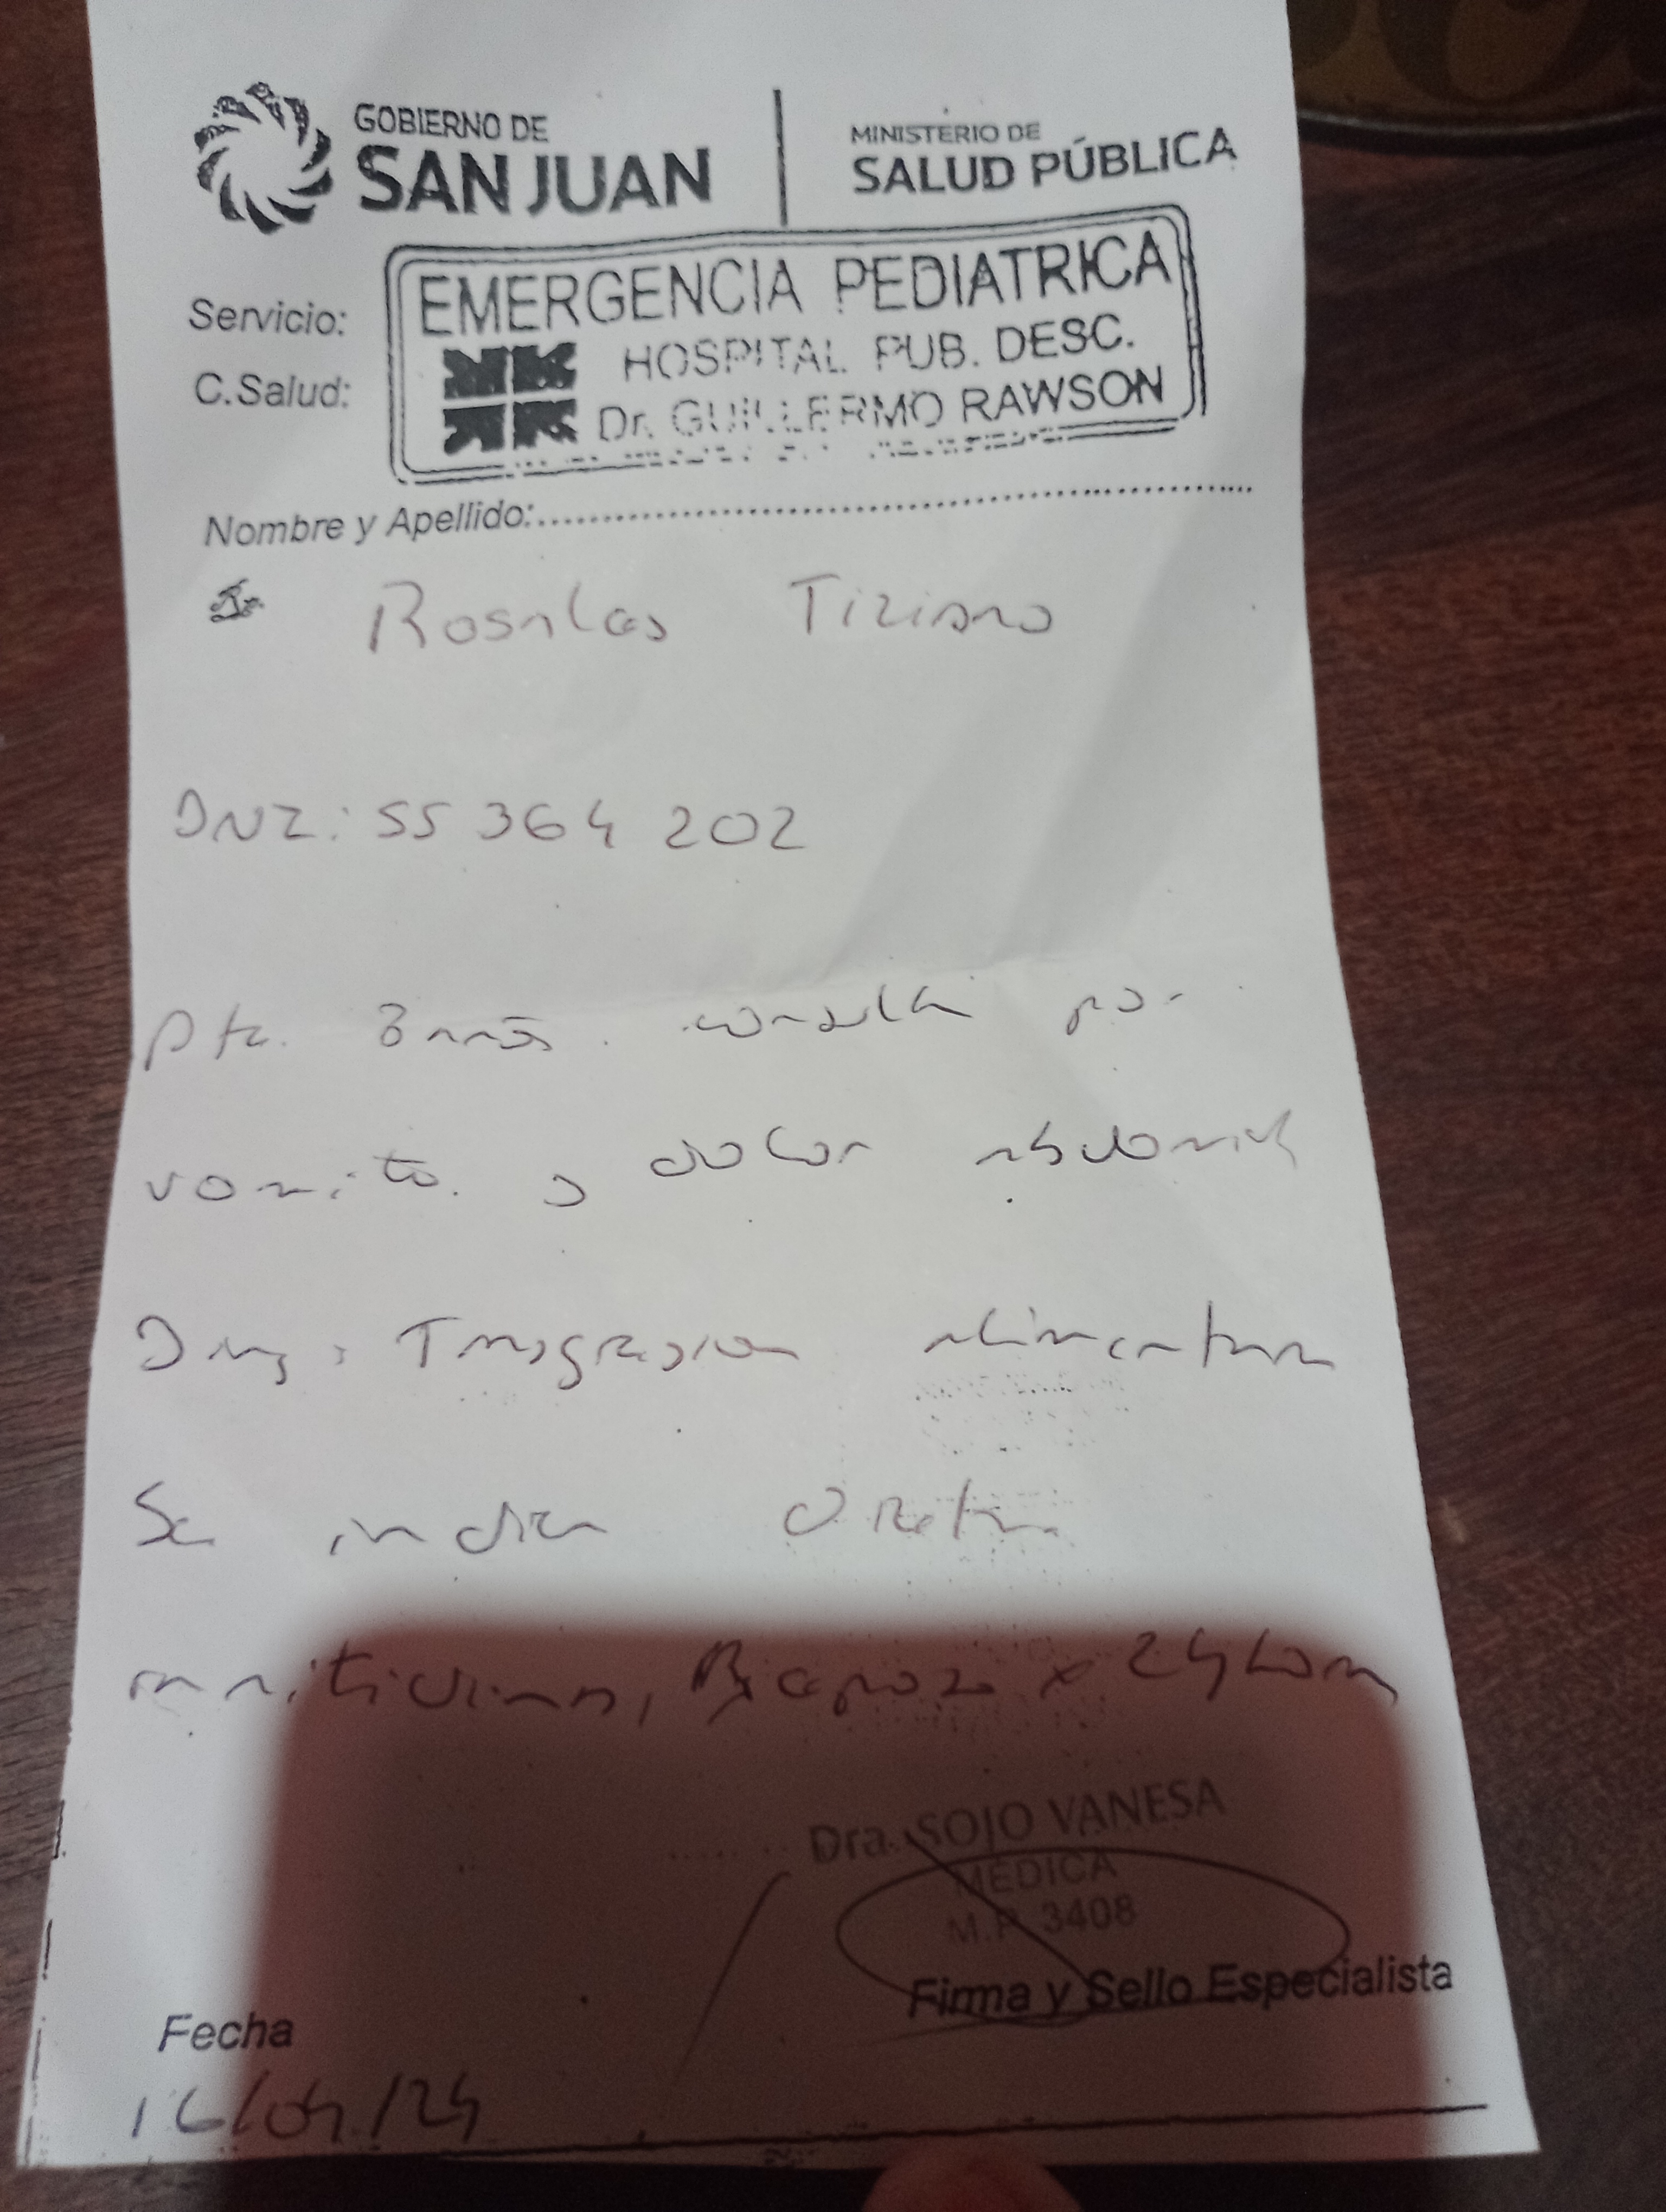 GOBIERNO DE
SAN JUAN
MINISTERIO DE
SALUD PÚBLICA
Servicio:
C.Salud:
EMERGENCIA PEDIATRICA
HOSPITAL PUB. DESC.
Dr. GUILLERMO RAWSON
Nombre y Apellido:
Rosales Tiziano
DNI: 55 364 202
Pte. 8 años. consulta por
vomito. y dolor abdominal
Diag: Transgresion alimentaria
Se indica Dieta
, Reposo x 24 horas
Dra. SOJO VANESA
MÉDICA
M.P. 3408
Firma y Sello Especialista
Fecha
16/04/24